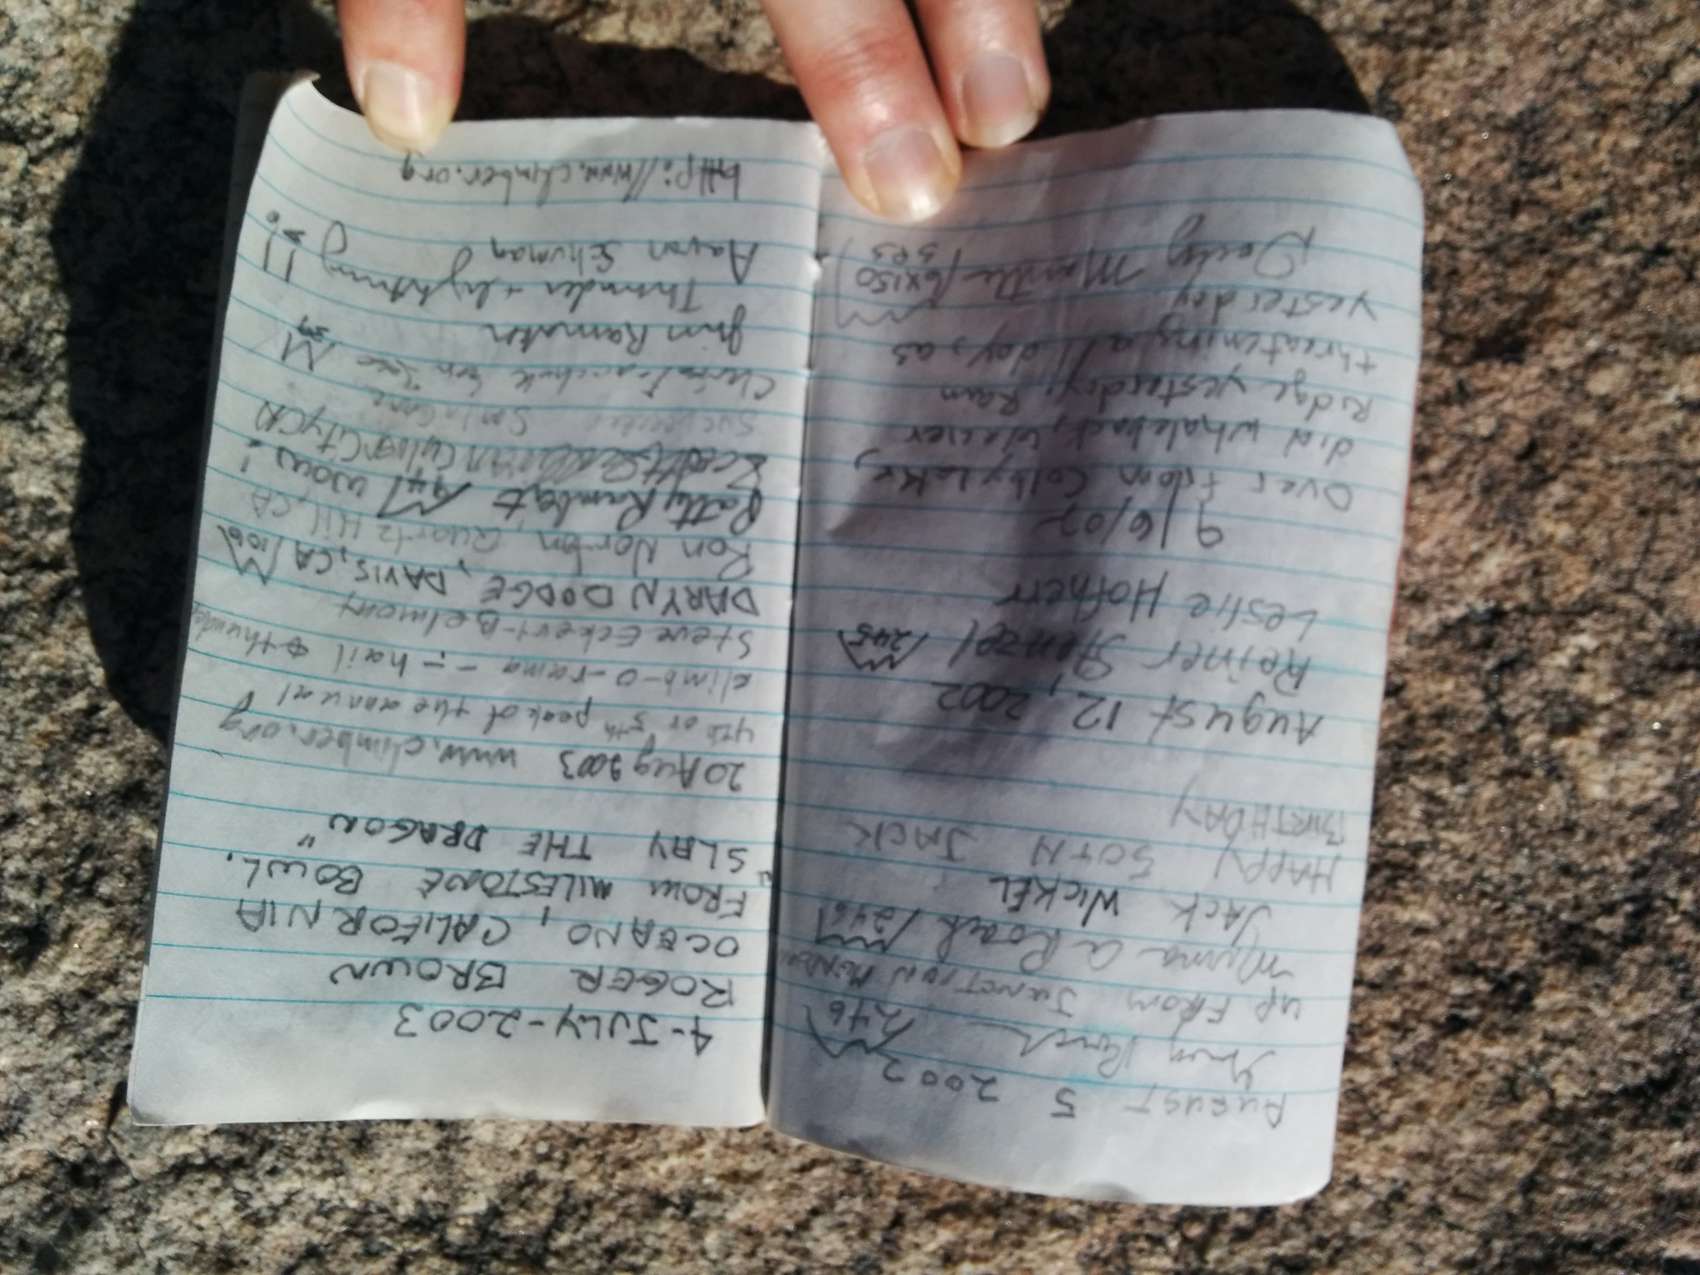 AUGUST 5 2002
246
UP FROM JUNCTION
Myrna A Roach 246
JACK WICKEL
HAPPY 50TH JACK
BIRTHDAY
August 12, 2002
Reiner Stenzel 245
Leslie Hofherr
9/6/02
Over from Colby Lake,
did whaleback, Glacier
Ridge yesterday; Rain
threatening all day, as
yesterday
Doug Mantle (6x150)
SPS
4-JULY-2003
ROGER BROWN
OCEANO, CALIFORNIA
FROM MILESTONE BOWL.
"SLAY THE DRAGON"
20 Aug 2003 www.climber.org
4th or 5th peak of the annual
climb-o-rama -- hail & thunder
Steve Eckert - Belmont
DARYN DODGE, DAVIS, CA 106
Ron Norton Quartz Hill, CA
Patty Rambert 94 WOW!
Culver City CA
San Jose
Jim Ramaker
Thunder + Lightning!!
Aaron Schuman
http://www.climber.org